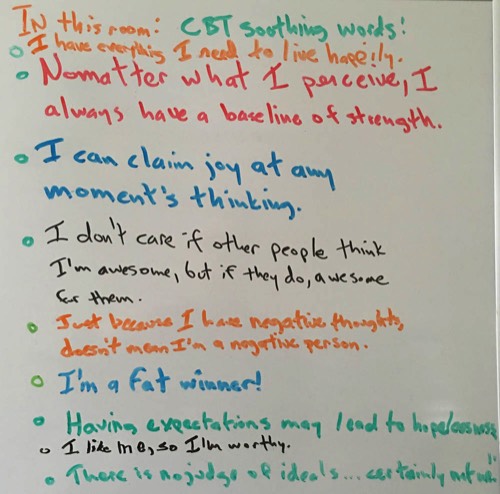 In this room: CBT soothing words!
• I have everything I need to live happily.
• Nomatter what I perceive, I
always have a baseline of strength.
• I can claim joy at any
moment's thinking.
• I don't care if other people think
I'm awesome, but if they do, awesome
for them.
• Just because I have negative thoughts,
doesn't mean I'm a negative person.
• I'm a fat winner!
• Having expectations may lead to hopelessness
• I like me, so I'm worthy.
• There is no judge of ideals... certainly not